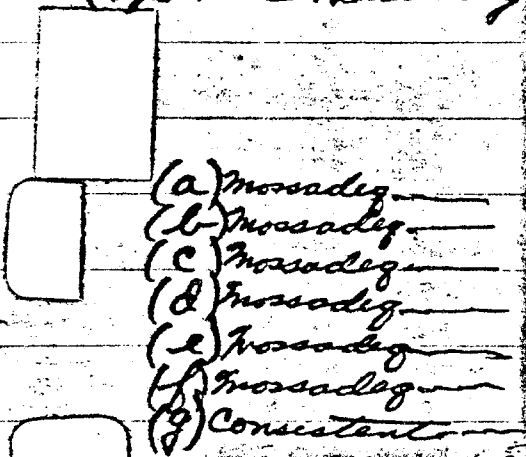 (a) Mossadeq
(b) Mossadeq
(c) Mossadeq
(d) Mossadeq
(e) Mossadeq
(f) Mossadeq
(g) Consistent